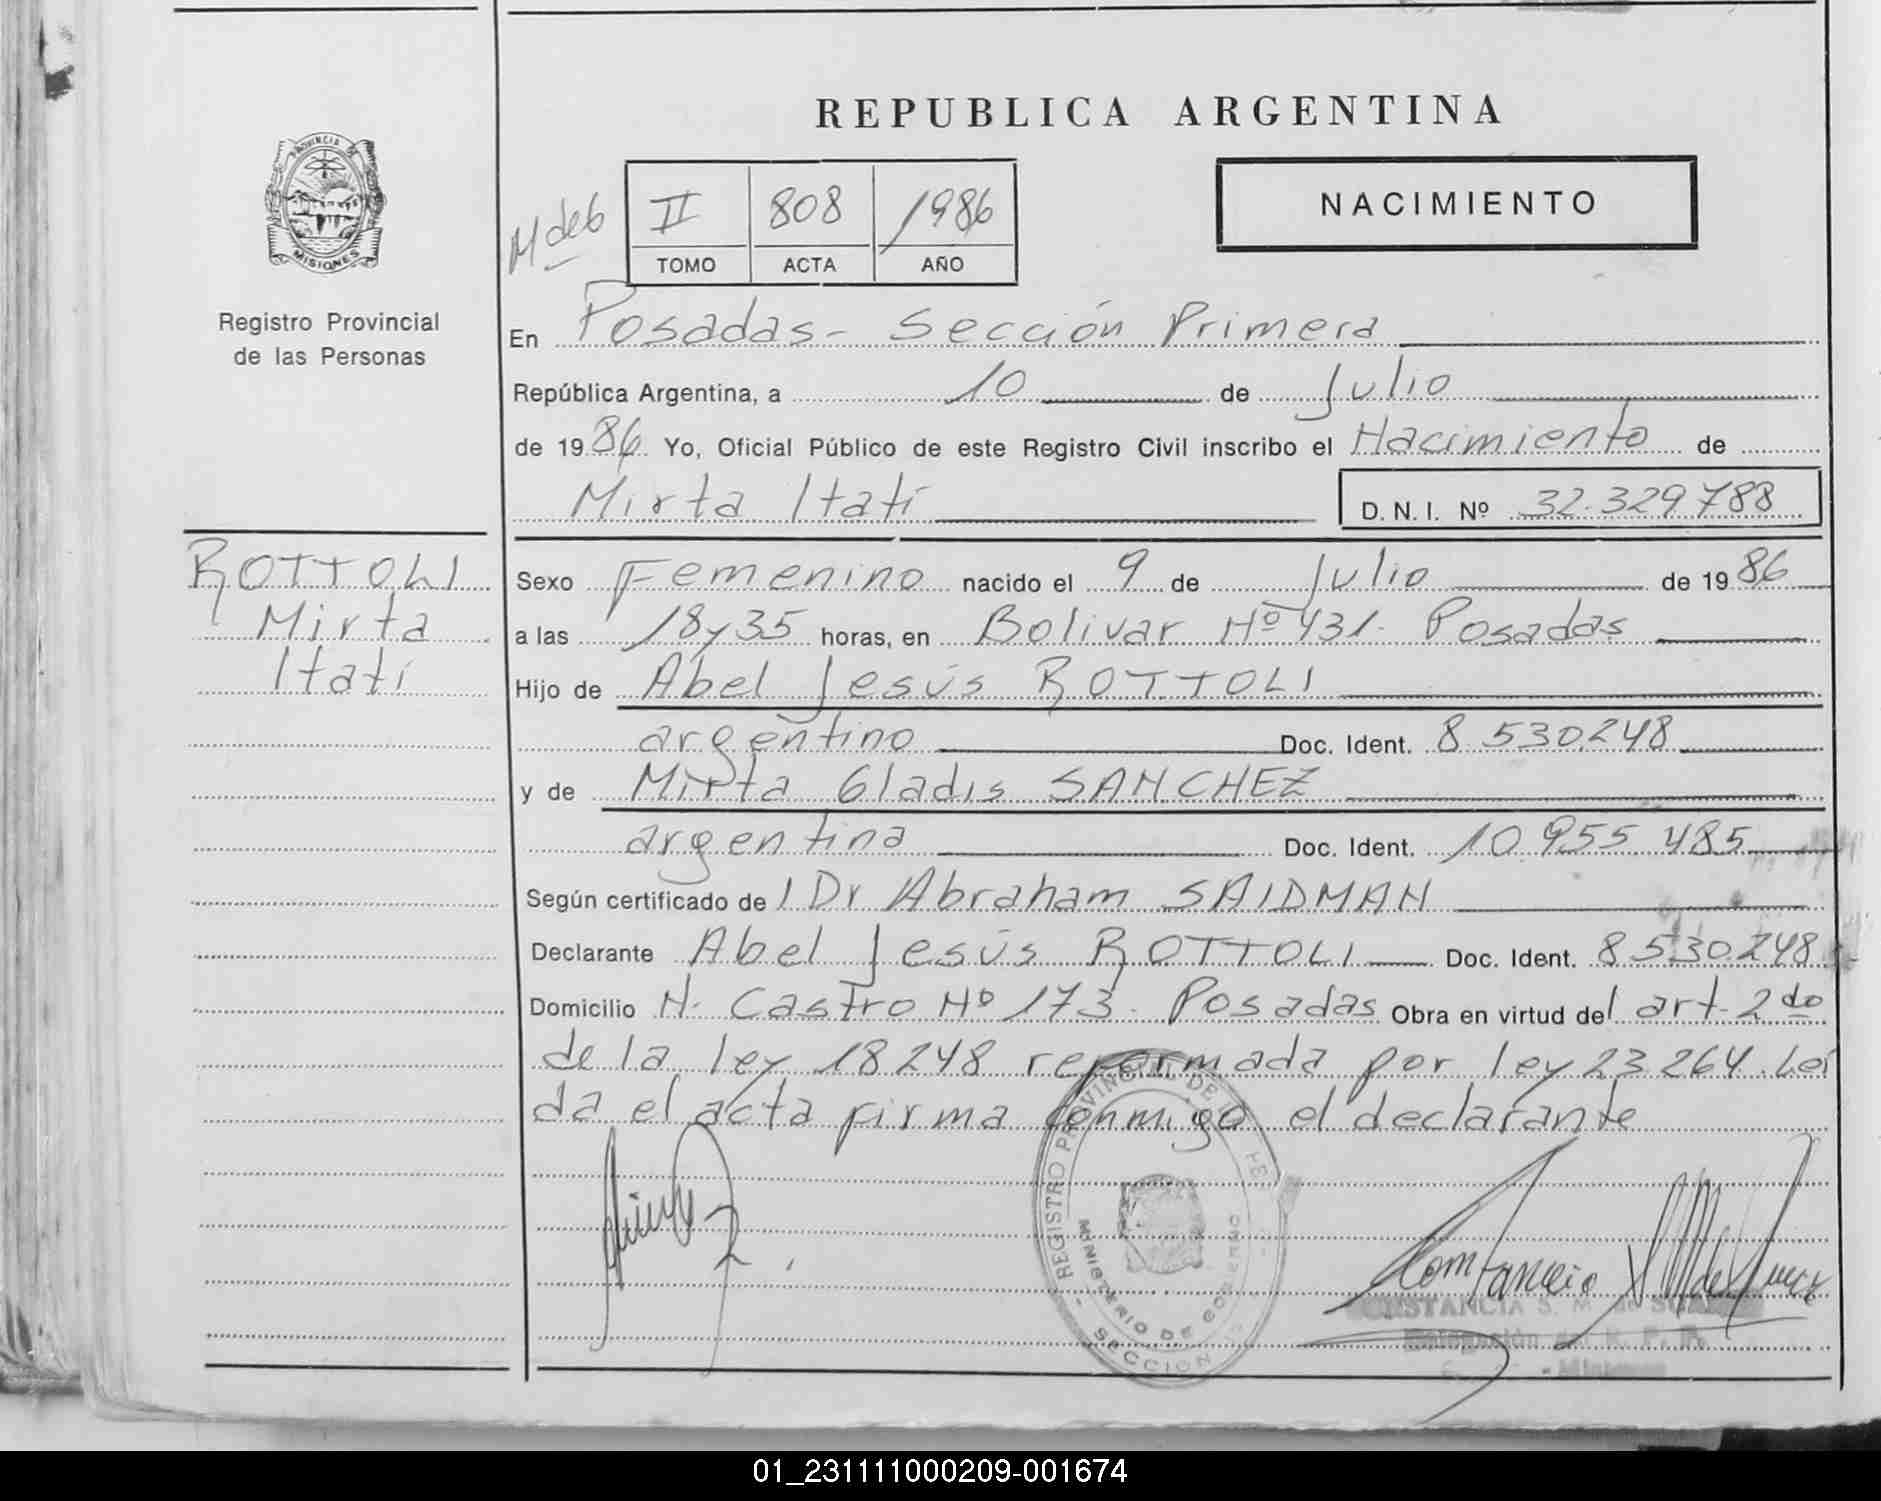 REPUBLICA ARGENTINA
PROVINCIA DE
MISIONES
Registro Provincial
de las Personas
M deb
II 808 1986
TOMO ACTA AÑO
NACIMIENTO
En Posadas - Sección Primera
República Argentina, a 10 de Julio
de 1986. Yo, Oficial Público de este Registro Civil inscribo el Nacimiento de
Mirta Itatí D.N.I. Nº 32.329788
ROTTOLI
Mirta
Itatí
Sexo Femenino nacido el 9 de Julio de 1986
a las 18y35 horas, en Bolivar Nº 431. Posadas
Hijo de Abel Jesús ROTTOLI
argentino Doc. Ident. 8 530.248
y de Mirta Gladis SANCHEZ
argentina Doc. Ident. 10.955 485
Según certificado del Dr Abraham SAIDMAN
Declarante Abel Jesús ROTTOLI Doc. Ident. 8530.248
Domicilio N. Castro Nº 173. Posadas Obra en virtud del art. 2do
de la ley 18248 reformada por ley 23264. Leí
da el acta firma conmigo el declarante
REGISTRO PROVINCIAL DE
MINISTERIO DE GOBIERNO
SECCION
01_231111000209-001674